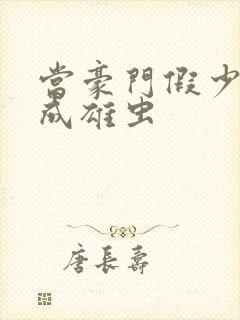 當豪門假少
成雄虫
唐長壽